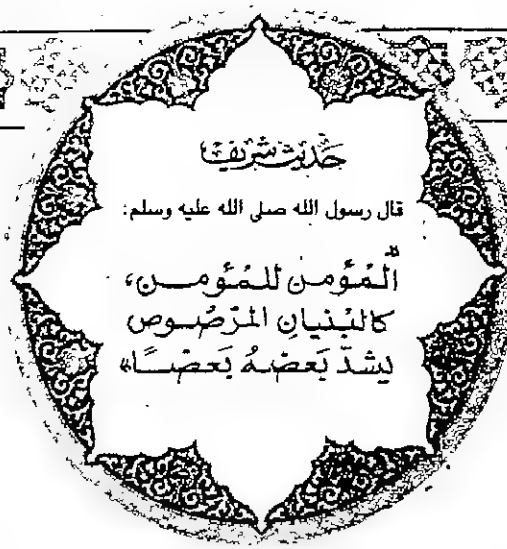 حَديث شَريف
قال رسول الله صلى الله عليه وسلم:
«المُؤمن للمُؤمــن،
كالبُنيانِ المَرصُـوص
يَشدّ بَعضـهُ بَعضــًا»